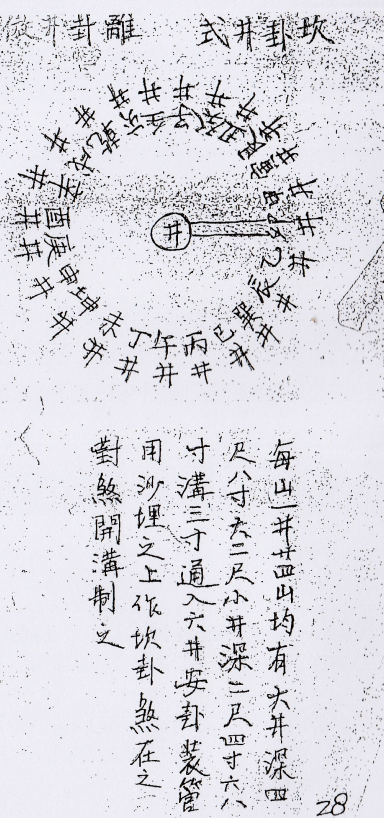 坎卦井式
離卦井
子 癸 丑 艮 寅 甲 卯 乙 辰 巽 巳 丙 午 丁 未 坤 申 庚 酉 辛 戌 乾 亥 壬
井 井 井 井 井 井 井 井 井 井 井 井 井 井 井 井 井 井 井 井 井 井 井 井
井
每山一井廿四山均有大井深四
尺八寸大二尺小井深二尺四寸大八
寸溝三寸通入大井安卦裝管
用沙埋之上作坎卦煞在之
對煞開溝制之
28